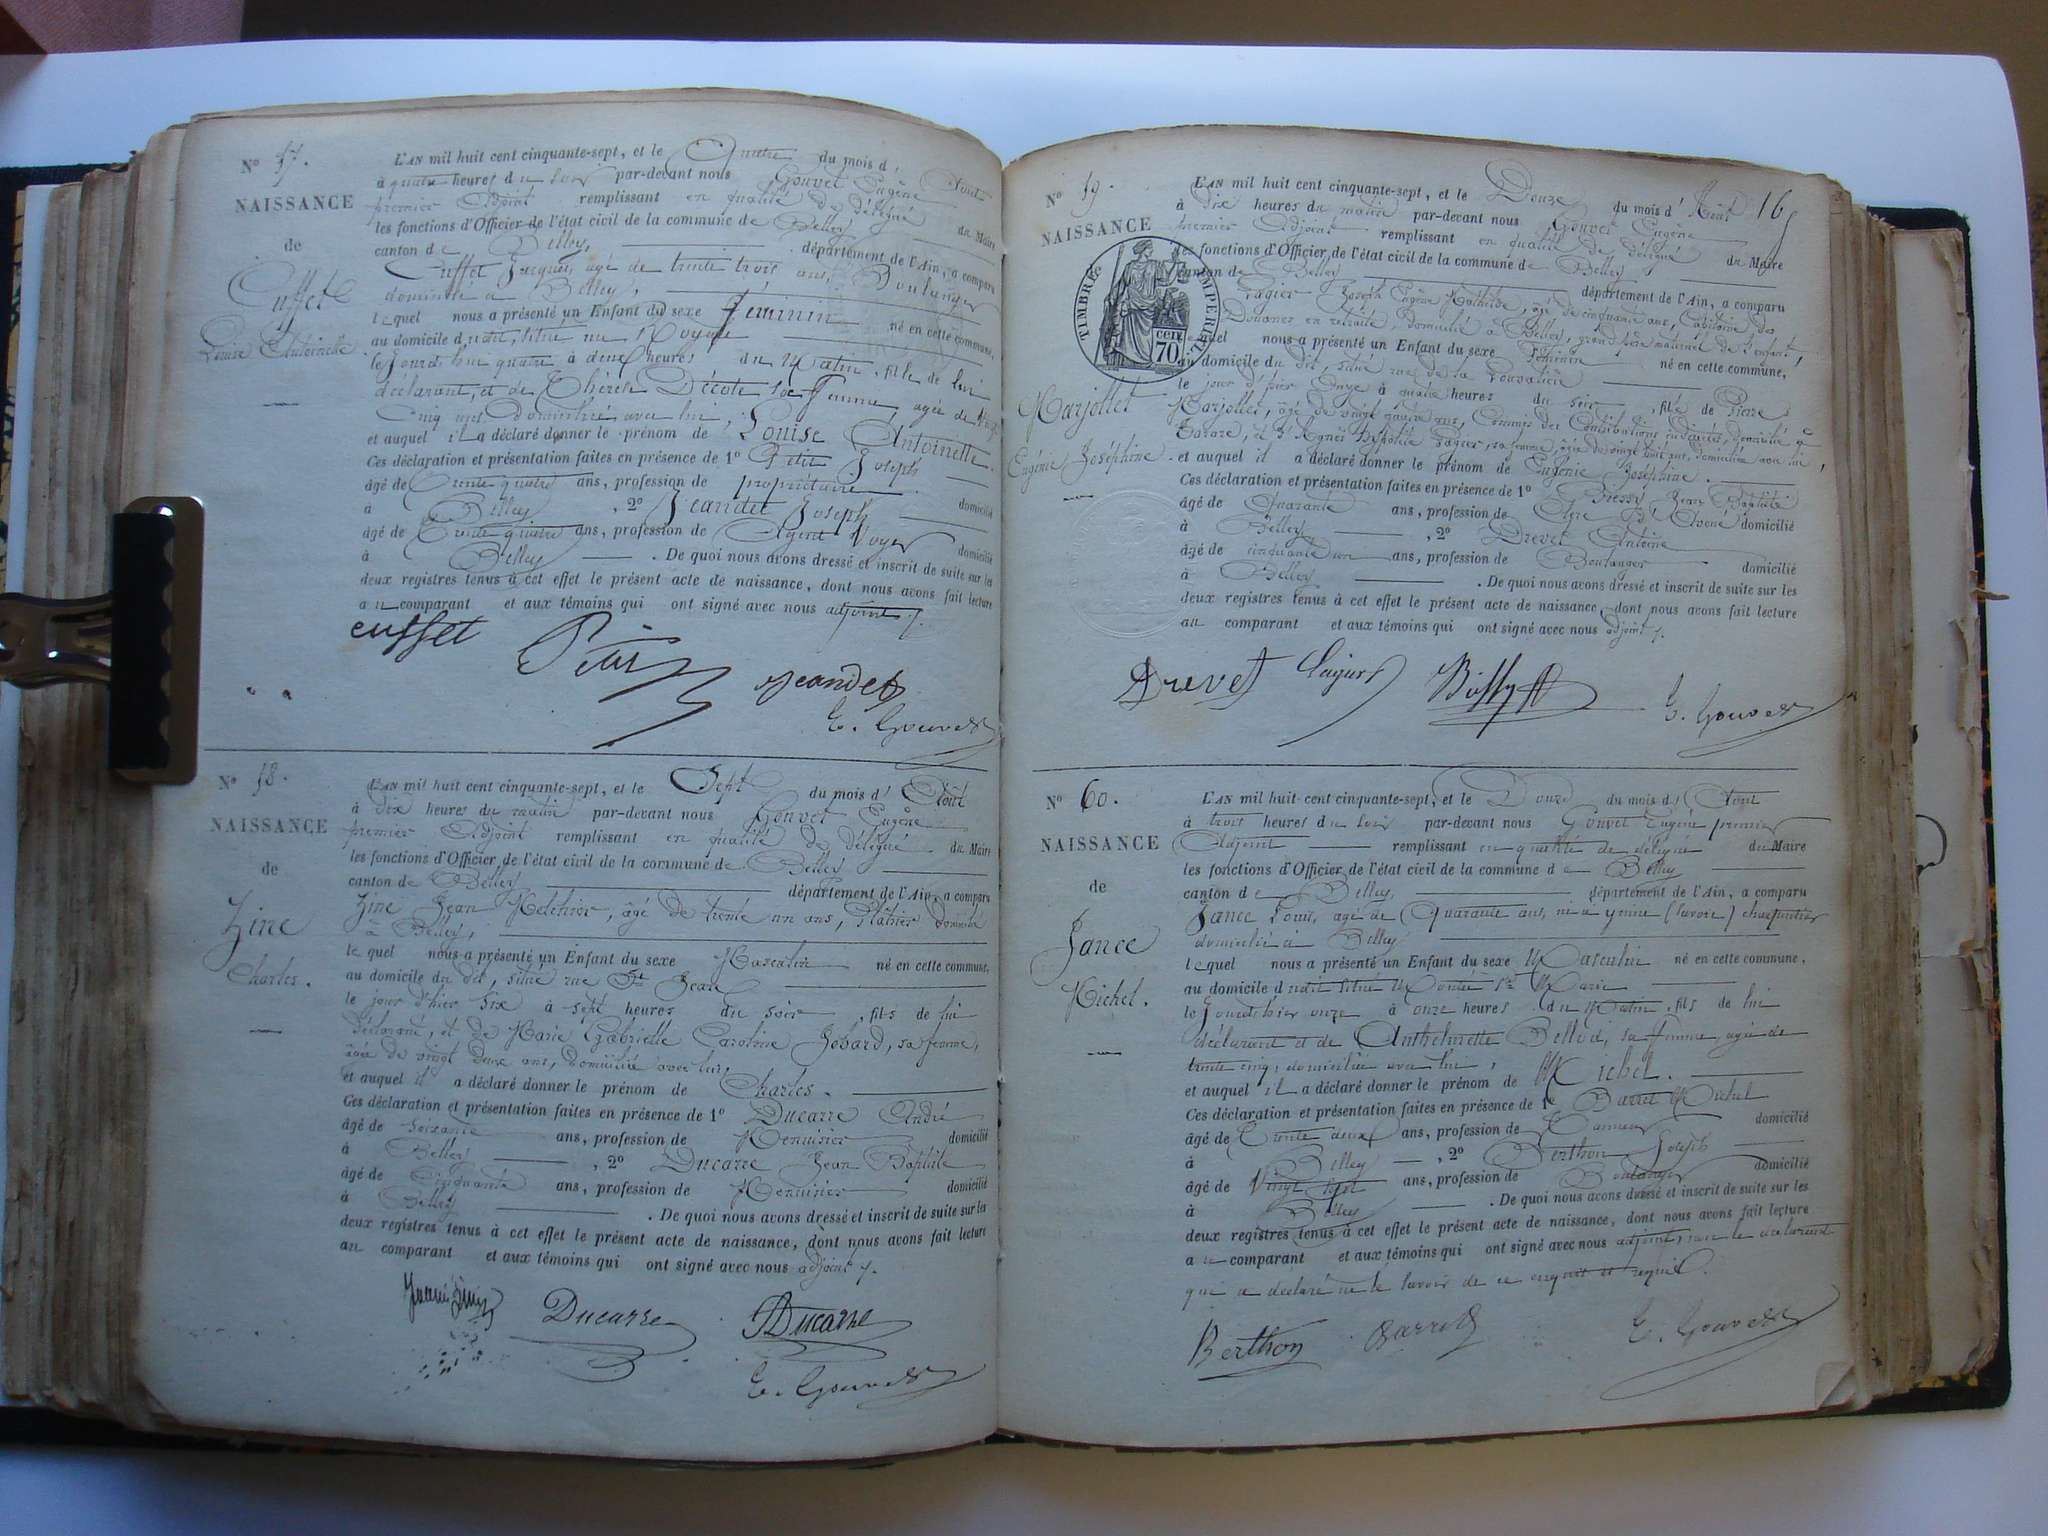 N° 57.
NAISSANCE
de
Cuffet
Louise Antoinette
L'AN mil huit cent cinquante-sept, et le Quatre du mois d' Août
à quatre heures du soir par-devant nous Gouvet Eugène
premier Adjoint remplissant en qualité de délégué du Maire
les fonctions d'Officier de l'état civil de la commune de Belley
canton de Belley, département de l'Ain, a comparu
Cuffet Jacques, agé de trente trois ans, Boulanger
domicilié à Belley,
lequel nous a présenté un Enfant du sexe féminin né en cette commune,
au domicile du dit, situé rue
le jourd'hui quatre à deux heures du Matin, fille de lui
déclarant, et de Thérèse Décote sa femme, agée de vingt
cinq ans domiciliée avec lui,
et auquel il a déclaré donner le prénom de Louise Antoinette.
Ces déclaration et présentation faites en présence de 1° Petit Joseph
âgé de trente quatre ans, profession de propriétaire domicilié
à Belley, 2° Jeandet Joseph
âgé de trente quatre ans, profession de Agent Voyer domicilié
à Belley. De quoi nous avons dressé et inscrit de suite sur les
deux registres tenus à cet effet le présent acte de naissance, dont nous avons fait lecture
au comparant et aux témoins qui ont signé avec nous adjoint
cuffet Petit Jeandet
E. Gouvet
N° 58.
NAISSANCE
de
Zine
Charles.
L'AN mil huit cent cinquante-sept, et le Sept du mois d' Août
à dix heures du matin par-devant nous Gouvet Eugène
premier Adjoint remplissant en qualité de délégué du Maire
les fonctions d'Officier de l'état civil de la commune de Belley
canton de Belley département de l'Ain, a comparu
Zine Jean Melchior, âgé de trente un ans, Plâtrier domicilié
à Belley,
lequel nous a présenté un Enfant du sexe Masculin né en cette commune,
au domicile du dit, situé rue St Jean
le jour d'hier six à sept heures du soir, fils de lui
déclarant, et de Marie Gabrielle Caroline Jobard, sa femme,
âgée de vingt deux ans, domiciliée avec lui,
et auquel il a déclaré donner le prénom de Charles.
Ces déclaration et présentation faites en présence de 1° Ducarre André
âgé de soixante ans, profession de Menuisier domicilié
à Belley, 2° Ducarre Jean Baptiste
âgé de Cinquante ans, profession de Menuisier domicilié
à Belley. De quoi nous avons dressé et inscrit de suite sur les
deux registres tenus à cet effet le présent acte de naissance, dont nous avons fait lecture
au comparant et aux témoins qui ont signé avec nous adjoint
Ducarre Ducarre
E. Gouvet
16
N° 59.
NAISSANCE
TIMBRE IMPERIAL
70 cen
Marjollet
Eugénie Joséphine.
L'AN mil huit cent cinquante-sept, et le Douze du mois d' Août
à dix heures du matin par-devant nous Gouvet Eugène
premier Adjoint remplissant en qualité de délégué du Maire
les fonctions d'Officier de l'état civil de la commune de Belley
canton de Belley département de l'Ain, a comparu
Lagier Joseph Eugène, âgé de cinquante ans, Capitaine des
Douanes en retraite, domicilié à Belley, grand père maternel de l'enfant,
lequel nous a présenté un Enfant du sexe féminin né en cette commune,
au domicile du dit, situé rue de la
le jour d'hier Onze à quatre heures du soir, fille de Pierre
Marjollet, âgé de vingt ans, Commis des Contributions indirectes, domicilié à
Tarare, et d'Agnès Lagier, sa femme, âgée de vingt huit ans, domiciliée avec lui,
et auquel il a déclaré donner le prénom de Eugénie Joséphine.
Ces déclaration et présentation faites en présence de 1° Jean Baptiste
âgé de Quarante ans, profession de Clerc d'Avoué domicilié
à Belley, 2° Drevet Antoine
âgé de cinquante un ans, profession de Boulanger domicilié
à Belley. De quoi nous avons dressé et inscrit de suite sur les
deux registres tenus à cet effet le présent acte de naissance, dont nous avons fait lecture
au comparant et aux témoins qui ont signé avec nous adjoint
Drevet Lagier
E. Gouvet
N° 60.
NAISSANCE
de
Jance
Michel.
L'AN mil huit cent cinquante-sept, et le Douze du mois d' Août
à trois heures du soir par-devant nous Gouvet Eugène premier
Adjoint remplissant en qualité de délégué du Maire
les fonctions d'Officier de l'état civil de la commune de Belley
canton de Belley, département de l'Ain, a comparu
Jance Louis, agé de Quarante ans, né a yenne (savoie) charpentier
domicilié à Belley
lequel nous a présenté un Enfant du sexe Masculin né en cette commune,
au domicile du dit situé Montée Ste Marie
le Jourd'hier onze à onze heures du Matin, fils de lui
déclarant et de Anthelmette Bellod, sa femme, agée de
trente cinq, domiciliée avec lui,
et auquel il a déclaré donner le prénom de Michel.
Ces déclaration et présentation faites en présence de 1° Barret Michel
âgé de trente deux ans, profession de Tanneur domicilié
à Belley, 2° Berthon Joseph
âgé de Vingt sept ans, profession de Boulanger domicilié
à Belley. De quoi nous avons dressé et inscrit de suite sur les
deux registres tenus à cet effet le présent acte de naissance, dont nous avons fait lecture
au comparant et aux témoins qui ont signé avec nous adjoint, non le déclarant
qui a déclaré ne le savoir de ce enquis et requis.
Berthon Barret E. Gouvet